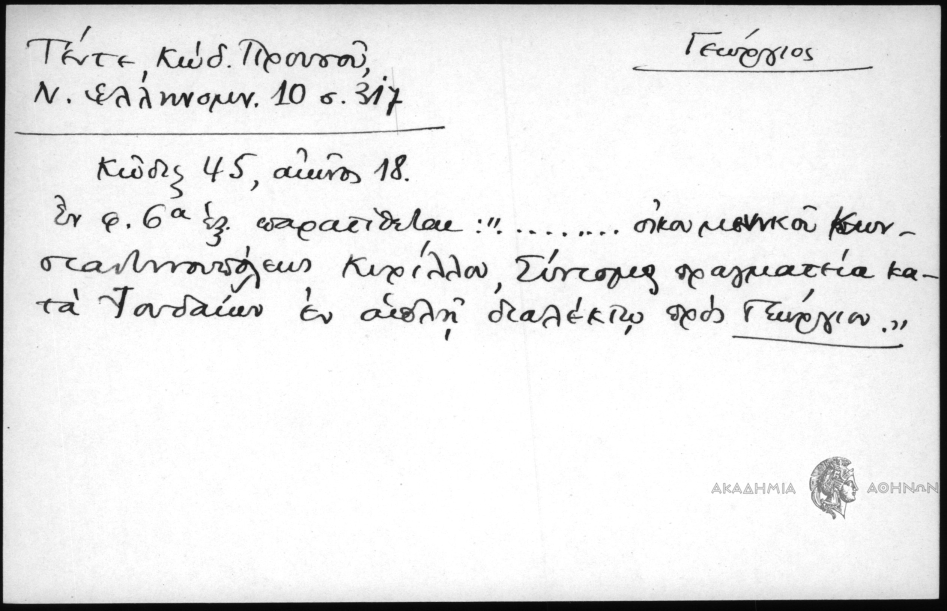 Γεώργιος
Τέντε, Κώδ. Προυσοῦ,
Ν. Ἑλληνομν. 10 σ. 317
Κῶδιξ 45, αἰῶνος 18.
Ἐν φ. 6α ἑξ. παρατίθεται : "........ οἰκουμενικοῦ Κων-
σταντινουπόλεως Κυρίλλου, Σύντομος πραγματεία κα-
τὰ Ἰουδαίων ἐν ἁπλῇ διαλέκτῳ πρὸς Γεώργιον."
ΑΚΑΔΗΜΙΑ ΑΘΗΝΩΝ